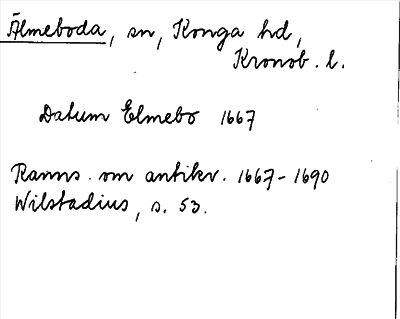 Älmeboda, sn, Konga hd,
Kronob. l.
Datum Elmebo 1667
Ranns. om antikv. 1667-1690
Wilstadius, s. 53.